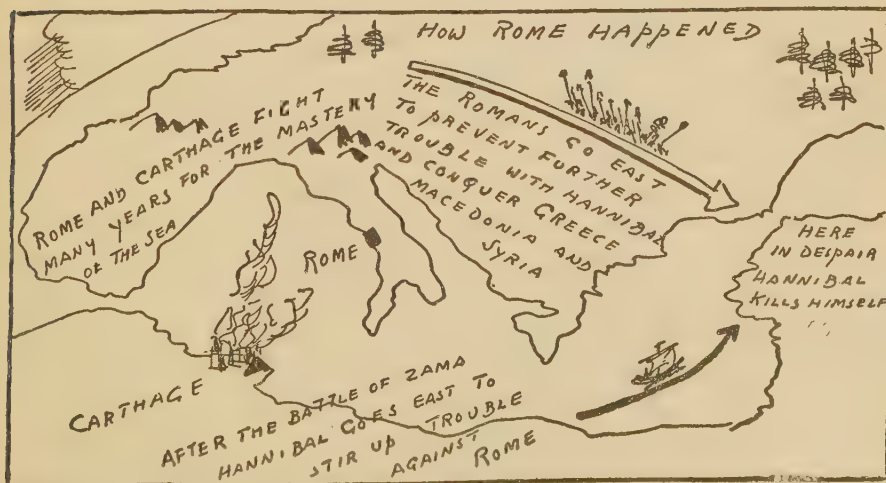 HOW ROME HAPPENED
ROME AND CARTHAGE FIGHT
MANY YEARS FOR THE MASTERY
OF THE SEA
THE ROMANS GO EAST
TO PREVENT FURTHER
TROUBLE WITH HANNIBAL
AND CONQUER GREECE
MACEDONIA AND
SYRIA
HERE
IN DESPAIR
HANNIBAL
KILLS HIMSELF
ROME
CARTHAGE
AFTER THE BATTLE OF ZAMA
HANNIBAL GOES EAST TO
STIR UP TROUBLE
AGAINST
ROME